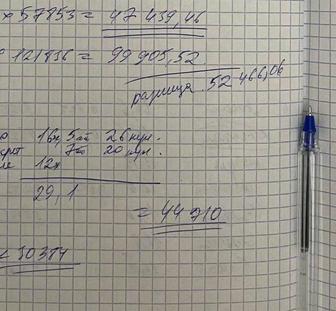 × 57853 = 47 439,46
121856 = 99 905,52
разница 52 466,06
16х, 5 26 кун.
7 20 кун.
12х
29,1
= 44 710
< 30384